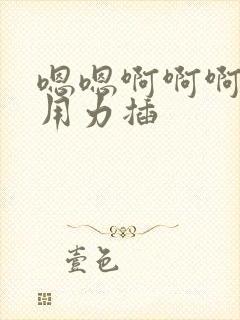 嗯嗯啊啊啊
用力插
壹色